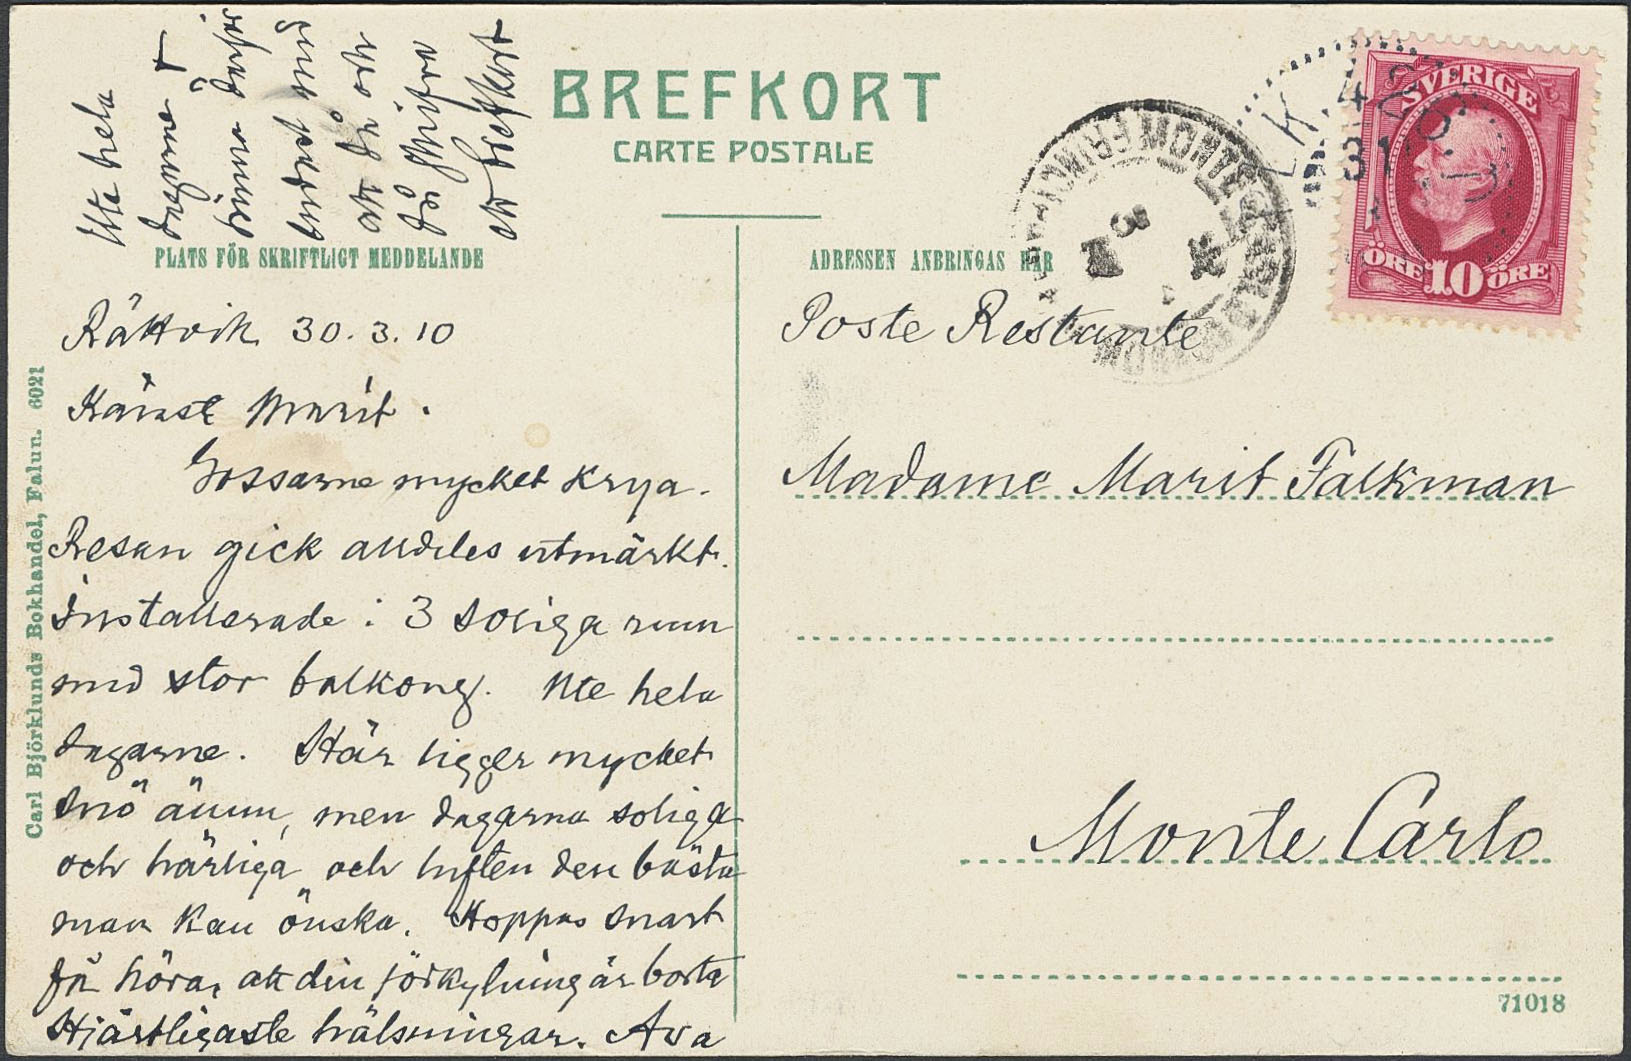 BREFKORT
CARTE POSTALE
PLATS FÖR SKRIFTLIGT MEDDELANDE
ADRESSEN ANBRINGAS HÄR
SVERIGE
ÖRE 10 ÖRE
Ute hela
dagarne +
hinna därför
endast med
att då och
då skrifva
ett brefkort
Rättvik 30.3.10
Käraste Marit.
Gossarne mycket krya.
Resan gick alldeles utmärkt.
Installerade i 3 soliga rum
med stor balkong. Ute hela
dagarne. Här ligger mycket
snö ännu, men dagarna soliga
och härliga och luften den bästa
man kan önska. Hoppas snart
få höra, att din förkylning är borta
Hjärtligaste hälsningar. Ava
Poste Restante
Madame Marit Falkman
Monte Carlo
Carl Björklunds Bokhandel, Falun. 6021
71018